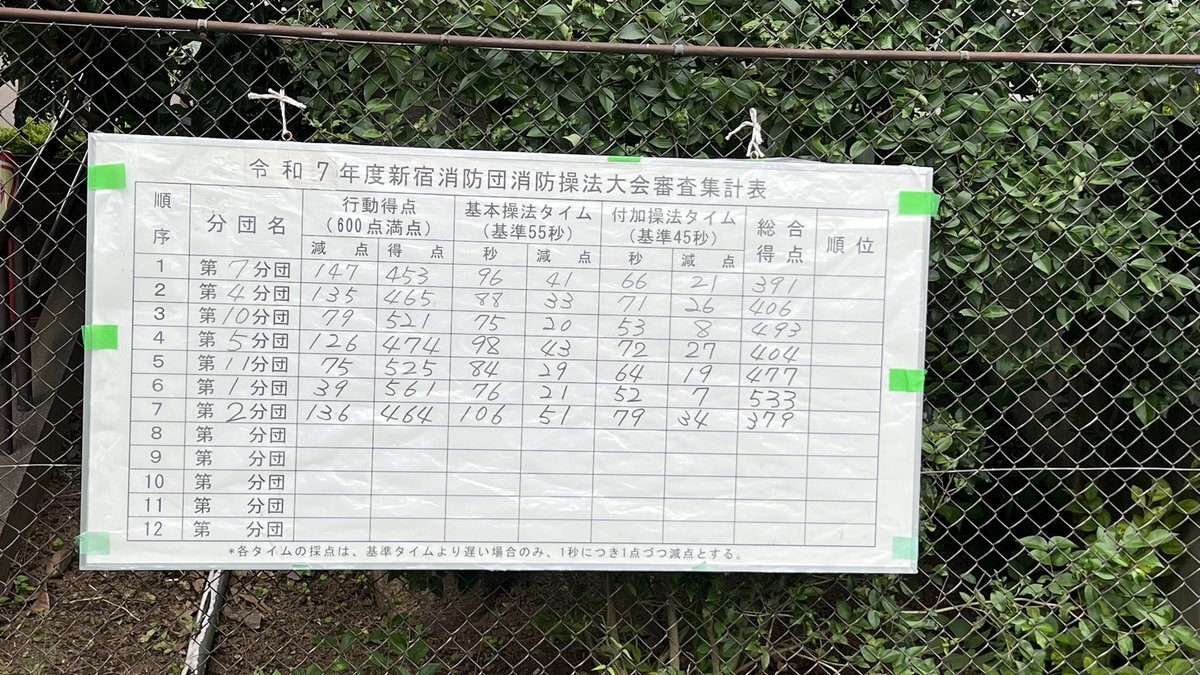 令和7年度新宿消防団消防操法大会審査集計表
順序 分団名 行動得点(600点満点) 基本操法タイム(基準55秒) 付加操法タイム(基準45秒) 総合得点 順位
減点 得点 秒 減点 秒 減点
1 第7分団 147 453 96 41 66 21 391
2 第4分団 135 465 88 33 71 26 406
3 第10分団 79 521 75 20 53 8 493
4 第5分団 126 474 98 43 72 27 404
5 第11分団 75 525 84 29 64 19 477
6 第1分団 39 561 76 21 52 7 533
7 第2分団 136 464 106 51 79 34 379
8 第 分団
9 第 分団
10 第 分団
11 第 分団
12 第 分団
*各タイムの採点は、基準タイムより遅い場合のみ、1秒につき1点づつ減点とする。